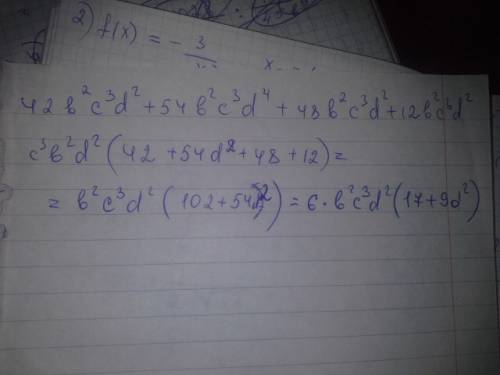 2) f(x) = - 3
42b²c³d² + 54b²c³d⁴ + 48b²c³d² + 12b²c³d²
c³b²d² (42 + 54d² + 48 + 12) =
= b²c³d² (102 + 54d²) = 6·b²c³d² (17 + 9d²)